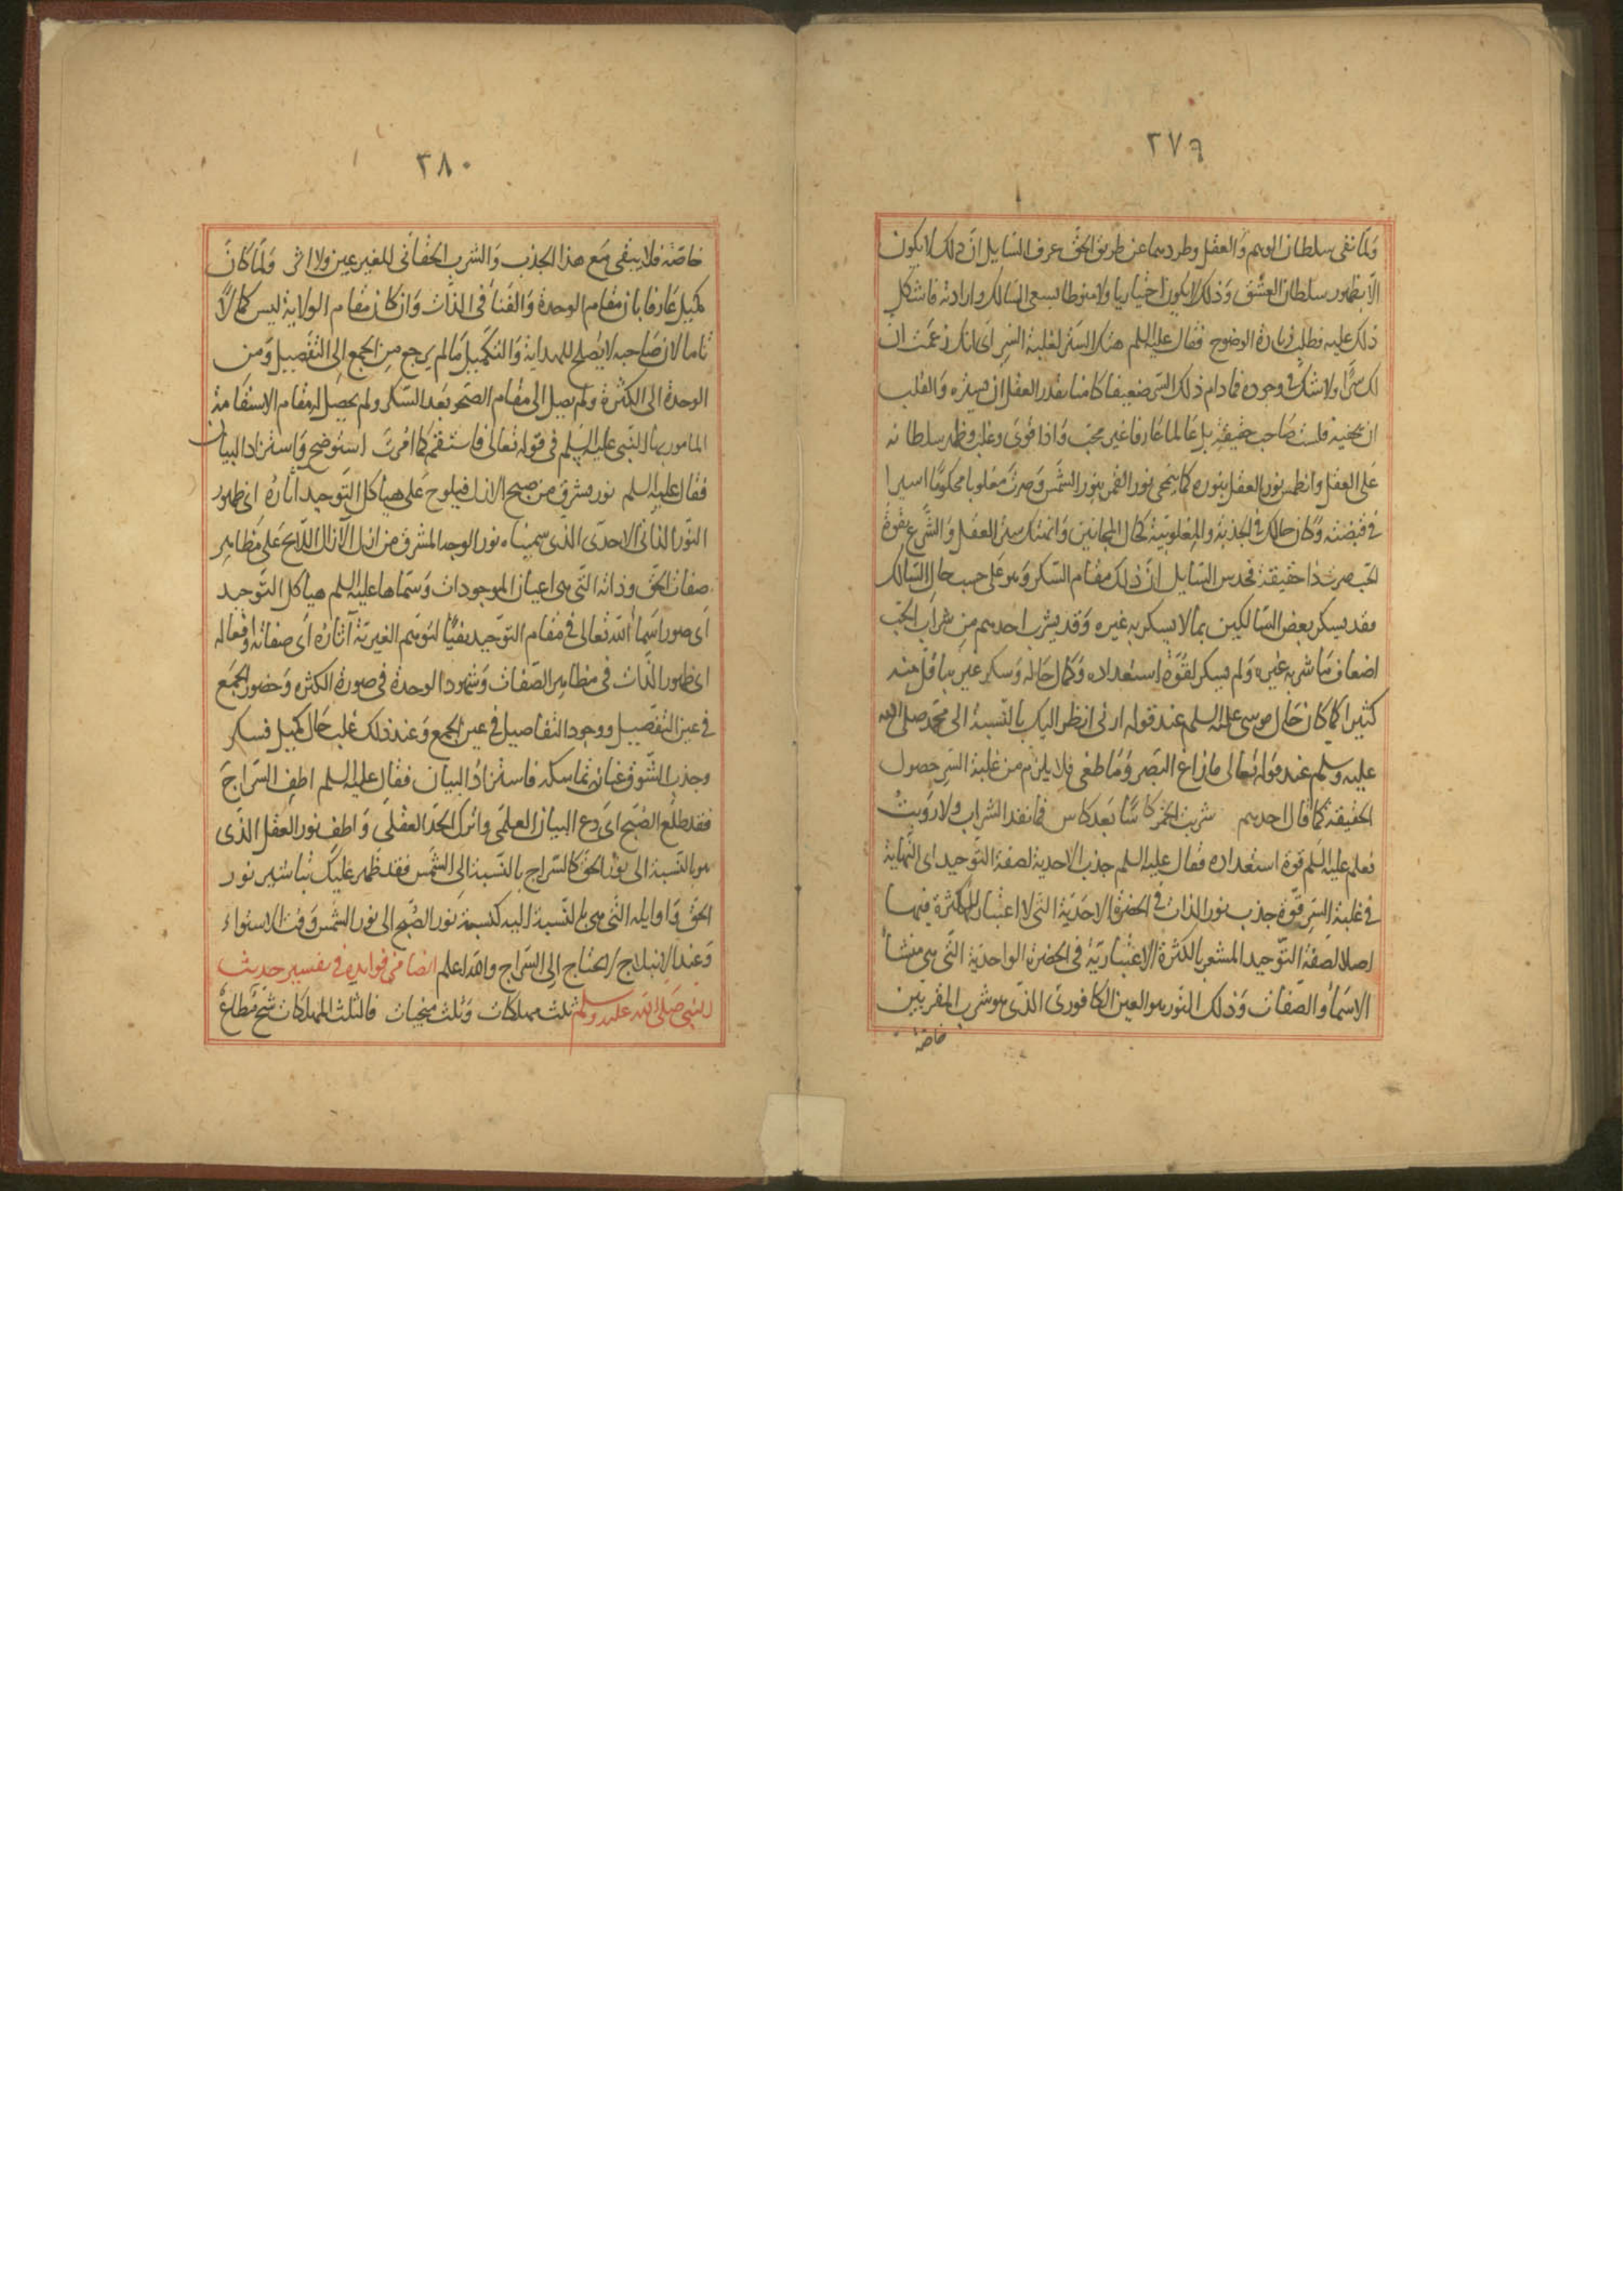 ٢٧٩
ولما نفى سلطان الوهم والعقل وطردهما عن طريق الحق عرف السايل ان ذلك لا يكون
الا بظهور سلطان العشق وذلك لا يكون اختياريا ولا منوطا بسعي السالك وارادته فاشكل
ذلك عليه فطلب زيادة الوضوح فقال عليه السلم هتك الستر لغلبة السر اى انك زعمت ان
لك سرا ولا شك في وجوده فما دام ذلك السر ضعيفا كامنا يقدر العقل ان يستره والقلب
ان يخفيه فلست صاحب حقيقة بل عالما عارفا غير محب واذا قوى وغلب وظهر سلطانه
على العقل وانطمس نور العقل بنوره كما ينمحى نور القمر بنور الشمس وصرت مغلوبا محكوما اسيرا
في قبضته وكان حالك في الجذبة والمغلوبية كحال المجانين وانهتك ستر العقل والشرع بقوة
الحب صرت ذا حقيقة فحدس السايل ان ذلك مقام السكر وهو على حسب حال السالك
فقد يسكر بعض السالكين بما لا يسكر به غيره وقد يشرب احدهم من شراب الحب
اضعاف ما شربه غيره ولم يسكر لقوة استعداده وكمال حاله وسكر غيره باقل منه
كثيرا كما كان حال موسى عليه السلم عند قوله ارنى انظر اليك بالنسبة الى محمد صلى الله
عليه وسلم عند قوله تعالى ما زاغ البصر وما طغى فلا يلزم من غلبة السر حصول
الحقيقة كما قال احدهم شربت الخمر كاسا بعد كاس فما نفد الشراب ولا رويت
فعلم عليه السلم قوة استعداده فقال عليه السلم جذب الاحدية لصفة التوحيد اى النهاية
في غلبة السر قوة جذب نور الذات في الحضرة الاحدية التى لا اعتبار للكثرة فيها
اصلا لصفة التوحيد المشعر بالكثرة الاعتبارية في الحضرة الواحدية التى هى منشأ
الاسماء والصفات وذلك النور هو العين الكافورى الذى هو شرب المقربين
خاصة
٢٨٠
خاصة فلا يبقى مع هذا الجذب والشرب الحقانى للغير عين ولا اثر ولما كان
كميل عارفا بان مقام الوحدة والفناء في الذات وان كان مقام الولاية ليس كمالا
تاما لان صاحبه لا يصلح للهداية والتكميل ما لم يرجع من الجمع الى التفصيل ومن
الوحدة الى الكثرة ولم يصل الى مقام الصحو بعد السكر ولم يحصل له مقام الاستقامة
المامور بها النبى عليه السلم في قوله تعالى فاستقم كما امرت استوضح واستزاد البيان
فقال عليه السلم نور يشرق من صبح الازل فيلوح على هياكل التوحيد اثاره اى ظهور
النور الذاتى الاحدى الذى سميناه نور الوجه المشرق من ازل الآزال اللايح على مظاهر
صفات الحق وذاته التى هى اعيان الموجودات وسماها عليه السلم هياكل التوحيد
اى صور اسماء الله تعالى في مقام التوحيد نفيا لتوهم الغيرية آثاره اى صفاته وافعاله
اى ظهور الذات في مظاهر الصفات وشهود الوحدة في صورة الكثرة وحضور الجمع
في عين التفصيل ووجود التفاصيل في عين الجمع وعند ذلك غلب حال كميل فسكر
وجذب الشوق عنان تماسكه فاستزاد البيان فقال عليه السلم اطف السراج
فقد طلع الصبح اى دع البيان العلمى واترك الحد العقلى واطف نور العقل الذى
هو بالنسبة الى نور الحق كالسراج بالنسبة الى الشمس فقد ظهر عليك تباشير نور
الحق واوايله التى هى بالنسبة اليه كنسبة نور الصبح الى نور الشمس وقت الاستواء
وعند الانبلاج لا يحتاج الى السراج والله اعلم ايضا من فوايده في تفسير حديث
النبى صلى الله عليه وسلم ثلث مهلكات وثلث منجيات فالثلث المهلكات شح مطاع